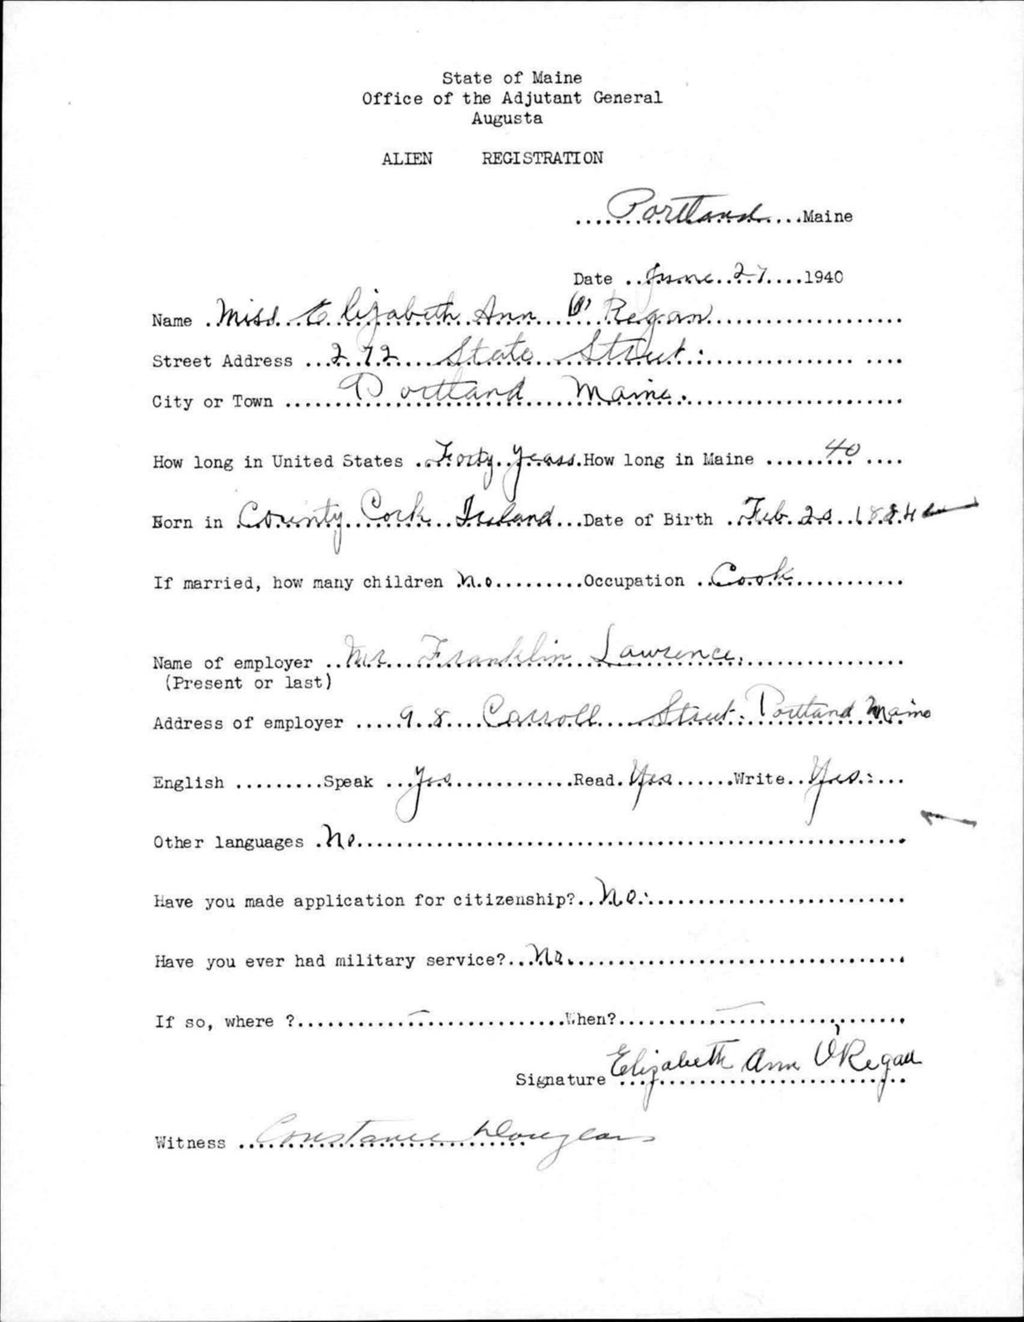 State of Maine
Office of the Adjutant General
Augusta
ALIEN REGISTRATION
....Portland....Maine
Date ..June 27....1940
Name .Miss Elizabeth Ann O'Regan
Street Address ...272 State Street.
City or Town ......Portland Maine.
How long in United States ..Forty years.How long in Maine ......40....
Born in .County Cork Ireland...Date of Birth ..Feb. 20 1884
If married, how many children No..........Occupation ..Cook
Name of employer ..Mr. Franklin Lawrence.
(Present or last)
Address of employer ....98 Carroll Street. Portland Maine
English .........Speak ...Yes..............Read.Yes......Write..Yes....
Other languages .No
Have you made application for citizenship?..No.
Have you ever had military service?...No.
If so, where ?............—..................When?............—............
Signature Elizabeth Ann O'Regan
Witness ..Constance Douglass